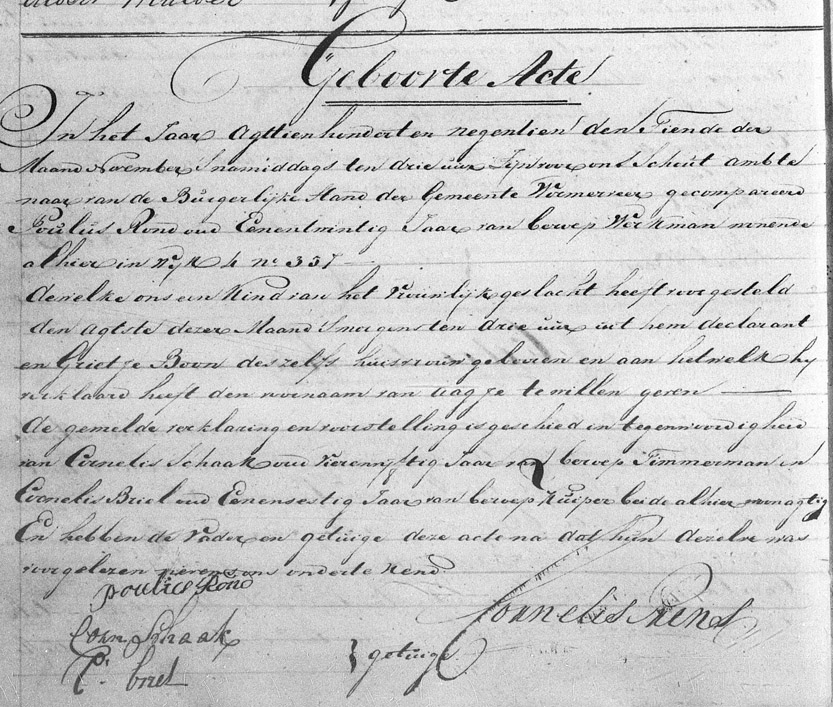 Geboorte Acte
In het Jaar Agttienhondert en negentien den Tiende der
Maand November s'namiddags ten drie uur Zijn voor ons Schout ambte
naar van de Burgerlijke Stand der Gemeente Wormerveer gecompareerd
Poulus Rond oud Eenentwintig Jaar van beroep Werkman wonende
alhier in Wijk 4 no 337
dewelke ons een Kind van het vrouwlijk geslacht heeft voorgesteld
den agtste dezer Maand Smorgens ten drie uur uit hem declarant
en Grietje Boon deszelfs huisvrouw geboren en aan hetwelk hy
verklaard heeft den voornaam van te willen geven
de gemelde verklaring en voorstelling is geschied in tegenwoordigheid
van Cornelis Schaak oud Vierenvyftig Jaar van beroep Timmerman en
Cornelis Briel oud Eenensestig Jaar van beroep Kuiper beide alhier woonagtig
En hebben de Vader en getuige deze acte na dat hun dezelve was
voorgelezen nevens ons ondertekend
poulus Rond
Cornelis
Corn Schaak
getuige
C.